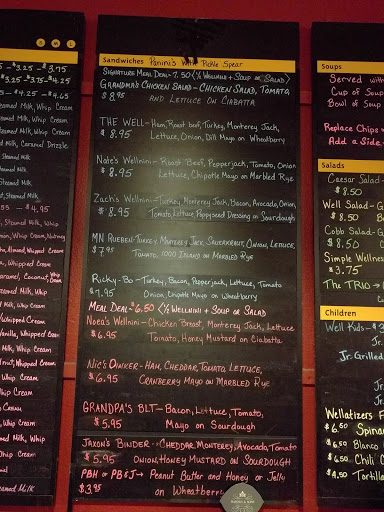 S M L
$3.25 - $3.75
$3.25 - $3.75 - $4.25
$4.25 - $4.65
Steamed Milk, Whip Cream
Steamed Milk, Whip Cream
Milk, Caramel Drizzle
Steamed Milk
Steamed Milk, Whip
4.95
Whip Cream
Whipped Cream
Whipped Cream
Whip Cream
Whip Cream
Whip Cream
Steamed Milk
Sandwiches Panini's With Pickle Spear
Signature Meal Deal - 7.50 (½ Wellnini + Soup or Salad)
Grandma's Chicken Salad - Chicken Salad, Tomato
$8.95 and Lettuce on Ciabatta
THE WELL - Ham, Roast beef, Turkey, Monterey Jack,
$8.95 Lettuce, Onion, Dill Mayo on Wheatberry
Nate's Wellnini - Roast Beef, Pepperjack, Tomato, Onion
$8.95 Lettuce, Chipotle Mayo on Marbled Rye
Zach's Wellnini - Turkey, Monterey Jack, Bacon, Avocado, Onion,
$8.95 Tomato, Lettuce, Poppyseed Dressing on Sourdough
MN Rueben - Turkey, Monterey Jack, Sauerkraut, Onion, Lettuce,
$7.95 Tomato, 1000 Island on Marbled Rye
Ricky-Bo - Turkey, Bacon, Pepperjack, Lettuce, Tomato
$7.95 Onion, Chipotle Mayo on Wheatberry
Meal Deal - $6.50 (½ Wellnini + Soup or Salad
Noea's Wellnini - Chicken Breast, Monterey Jack, Lettuce
$6.95 Tomato, Honey Mustard on Ciabatta
Nic's Oinker - Ham, Cheddar, Tomato, Lettuce,
$6.95 Cranberry Mayo on Marbled Rye
Grandpa's BLT - Bacon, Lettuce, Tomato,
$5.95 Mayo on Sourdough
Jaxon's Binder - Cheddar, Monterey, Avocado, Tomato
$5.95 Onion, Honey Mustard on Sourdough
PBH or PB&J → Peanut Butter and Honey or Jelly
$3.95 on Wheatberry
Soups
Served with
Cup of Soup
Bowl of Soup
Replace Chips
Add a Side
Salads
Caesar Salad
$8.50
Well Salad - G
$8.50
Cobb Salad - G
$8.50
Simple Wellness
$3.75
The TRIO
Children
Well Kids - $3
Jr.
Jr. Grilled
Jr.
Wellatizers
$6.50 Spina
$6.50 Blanco
$6.50 Chili C
$4.50 Tortill